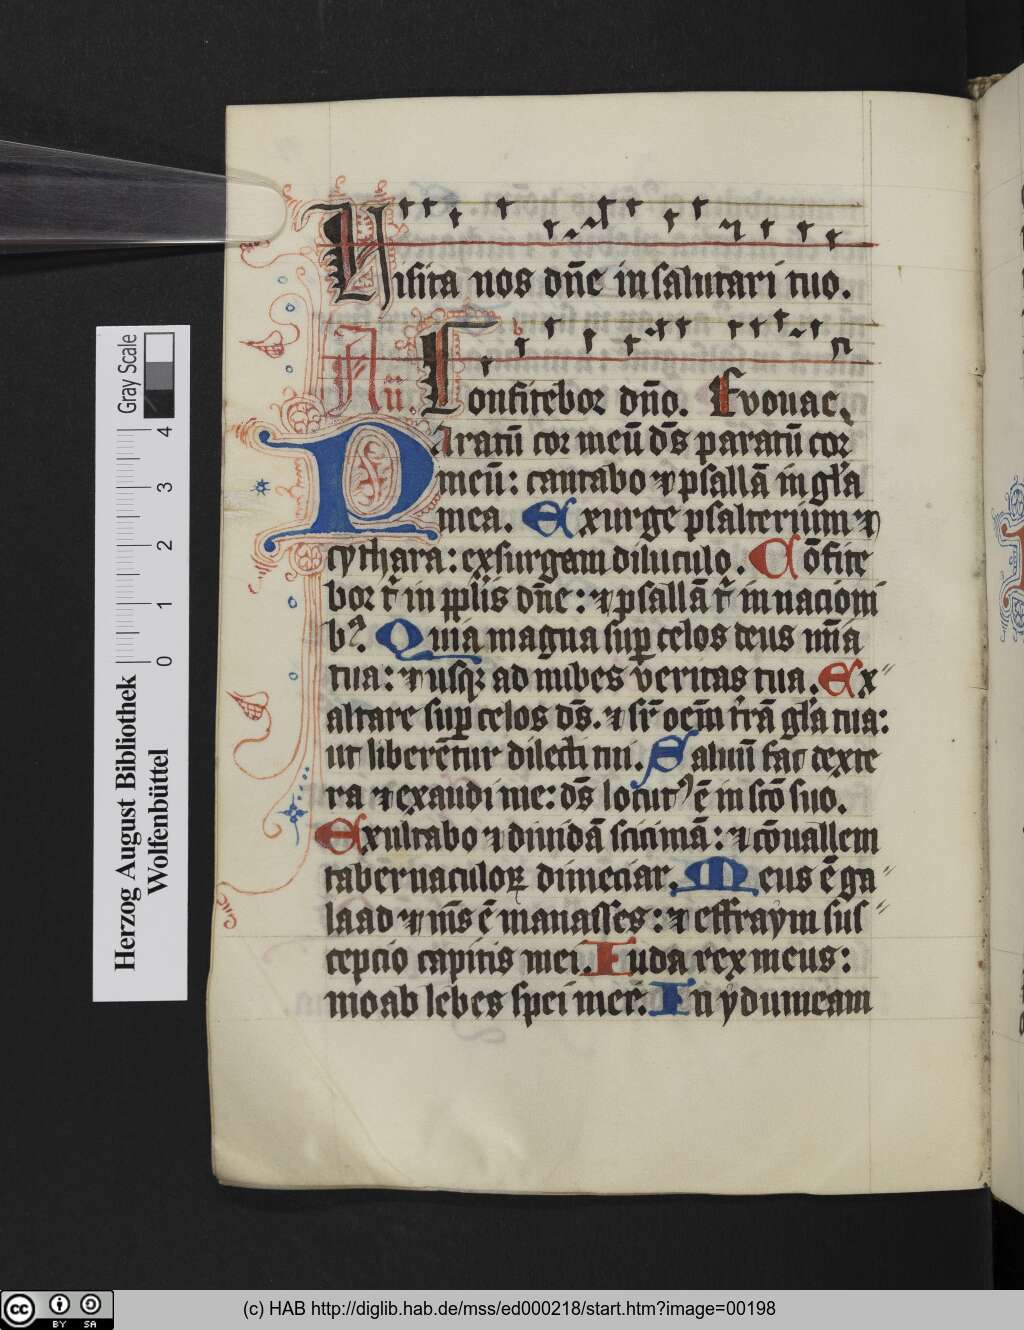 Visita nos dn̄e in salutari tuo.
An̄. Confitebor dn̄o. Evouae.
Paratū cor meū ds̄ paratū cor
meū: cantabo ⁊ psallā in gl̄a
mea. Exurge psalterium ⁊
cythara: exsurgam diluculo. Cōfite
bor t̄ in ppl̄is dn̄e: ⁊ psallā t̄ in nacioni
bꝫ Quia magna suꝑ celos deus mīa
tua: ⁊ usqꝫ ad nubes veritas tua. Ex
altare suꝑ celos ds̄. ⁊ sr̄ oēm t̄rā gl̄a tua:
ut liberētur dilecti tui. Saluū fac dexte
ra ⁊ exaudi me: ds̄ locutꝰ ē in scō suo.
Exultabo ⁊ dividā sicimā: ⁊ cōuallem
tabernaculoꝝ dimeciar. Meus ē ga
laad ⁊ ms̄ ē manasses: ⁊ effraym sus
cepcio capitis mei. Iuda rex meus:
moab lebes spei mee. In ydumeam
Herzog August Bibliothek
Wolfenbüttel
0 1 2 3 4
Gray Scale
cc BY SA
(c) HAB http://diglib.hab.de/mss/ed000218/start.htm?image=00198